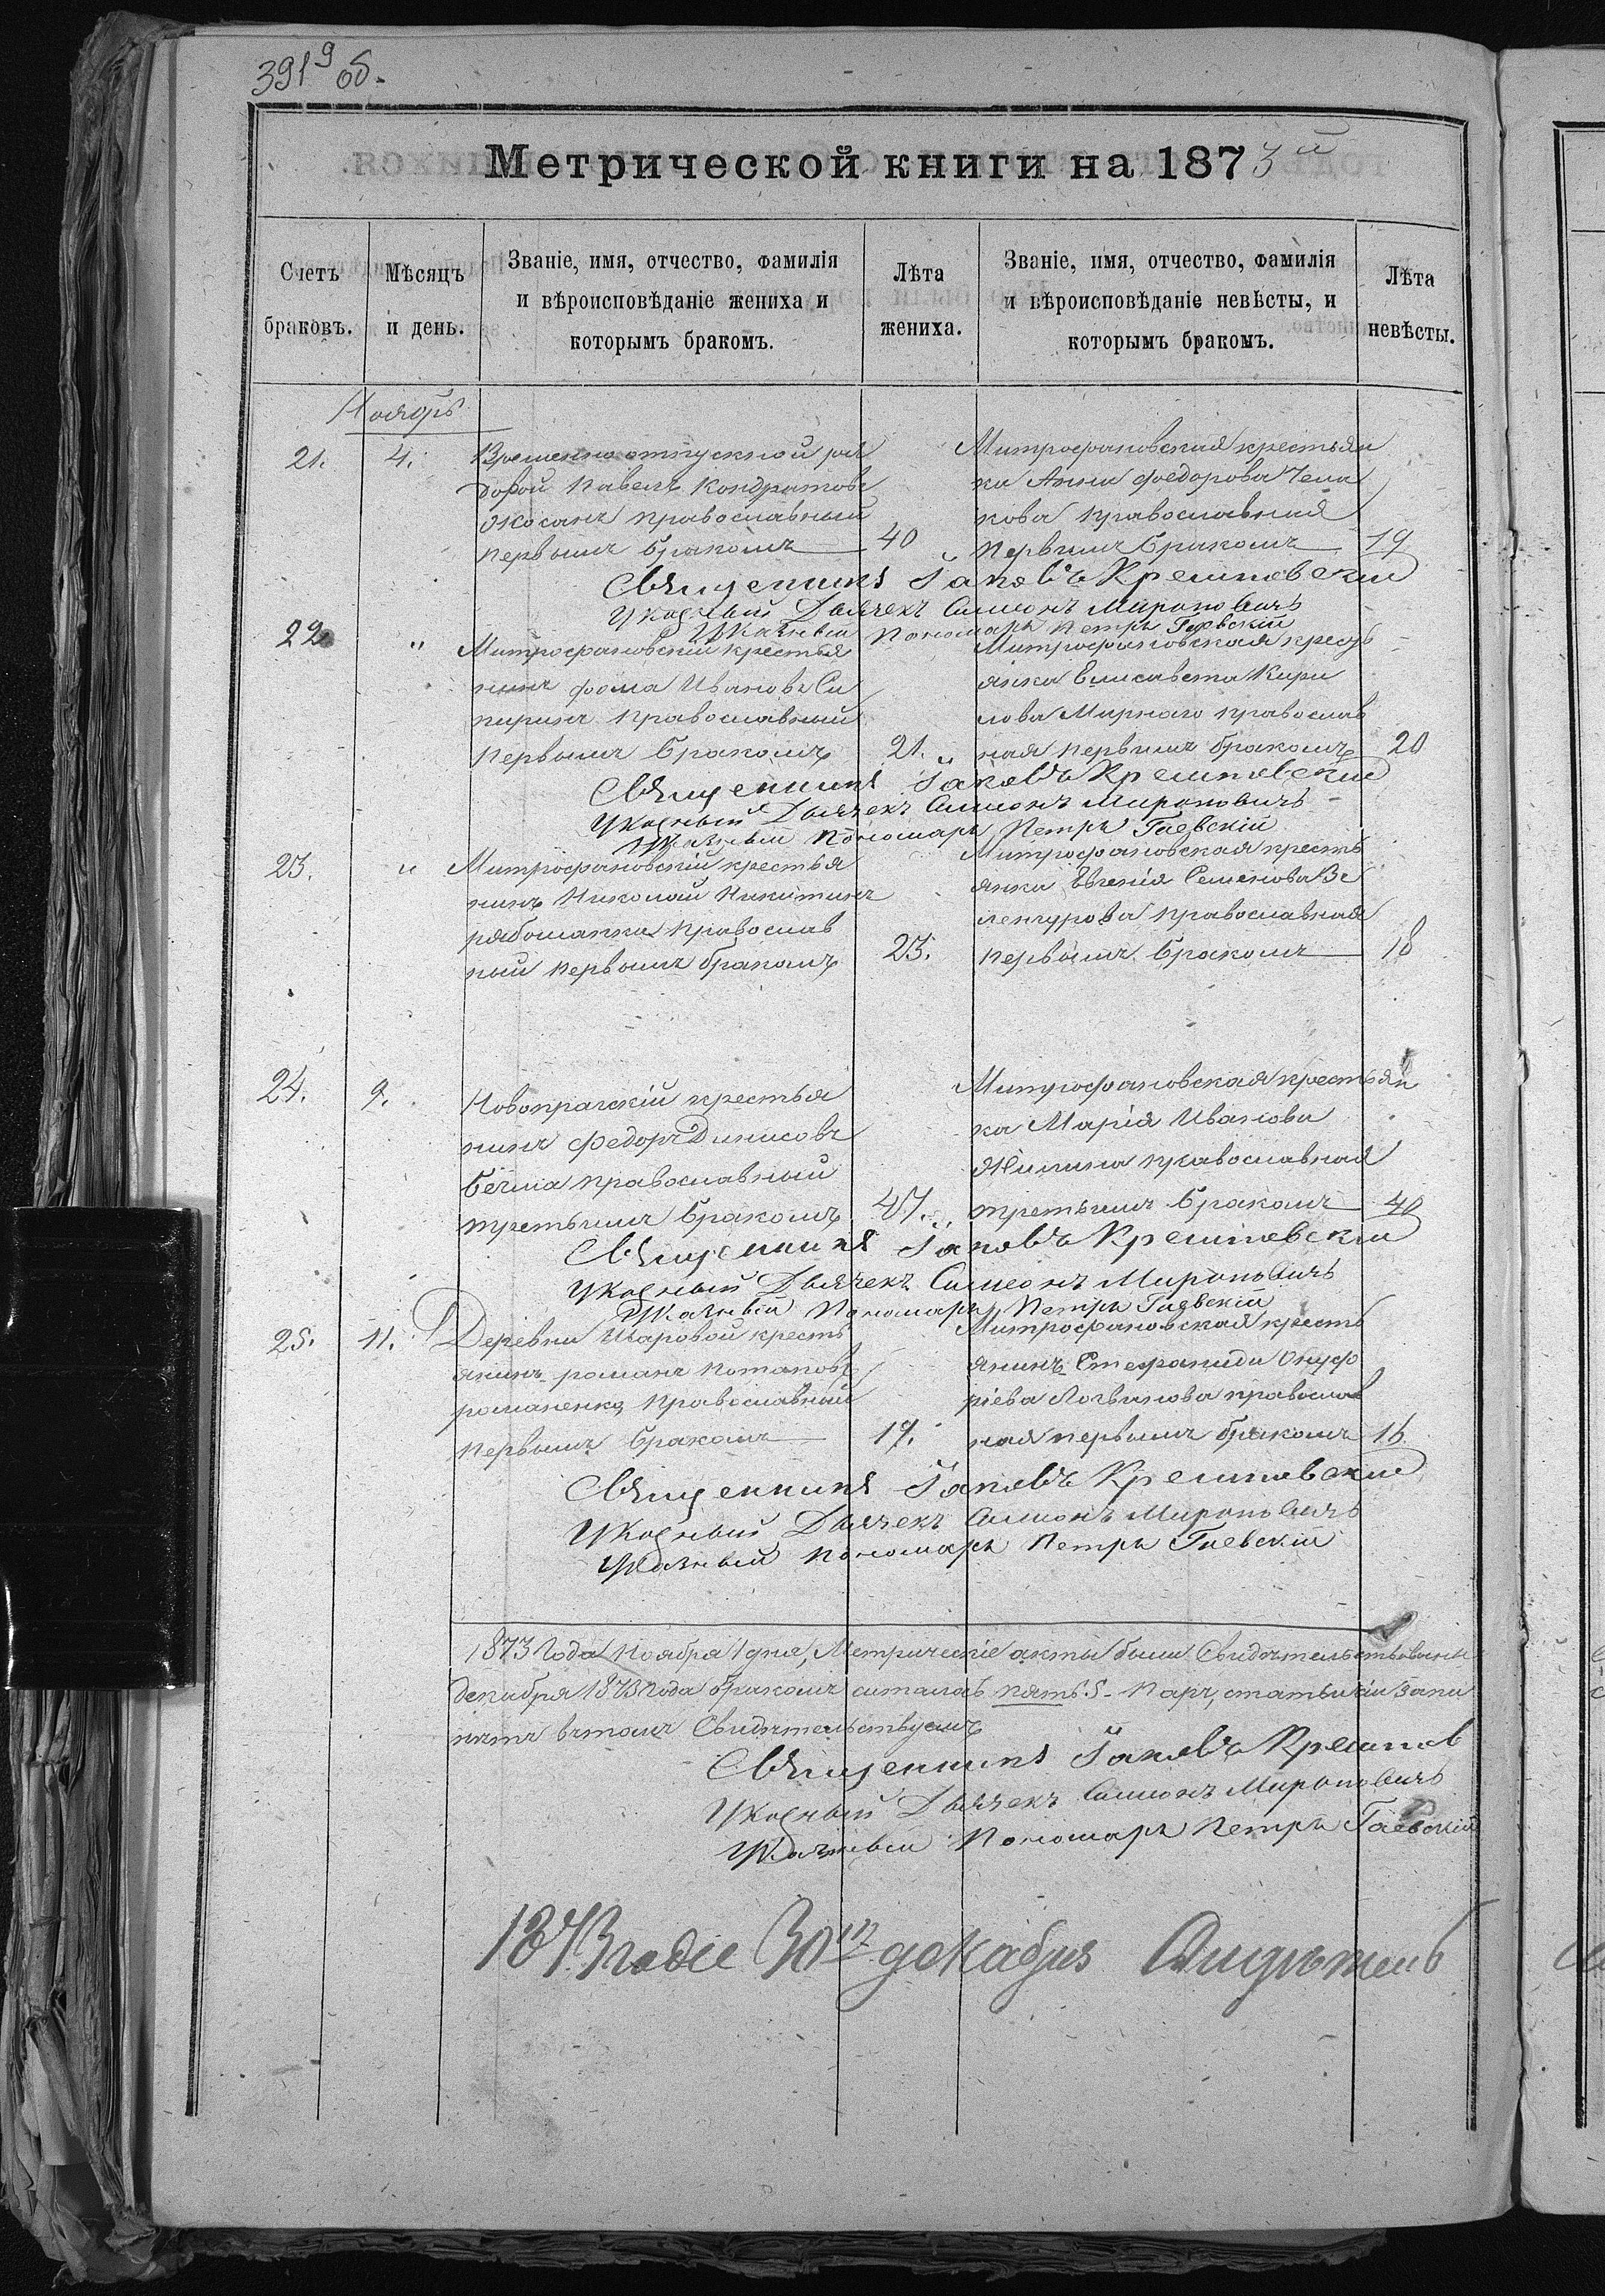 391⁹ об.
Метрической книги на 1873й
Счетъ браковъ.
Мѣсяцъ и день.
Званіе, имя, отчество, фамилія
и вѣроисповѣданіе жениха и
которымъ бракомъ.
Лѣта жениха.
Званіе, имя, отчество, фамилія
и вѣроисповѣданіе невѣсты, и
которымъ бракомъ.
Лѣта невѣсты.
Ноябрь
21. 4. Временно отпускной ря
довой Павелъ Кондратовъ
православный
первымъ бракомъ 40
Митрофановская крестьян
ка Анна Федорова
кова православная
первымъ бракомъ 19
Священникъ Іаковъ
Указный Дьячекъ Симеонъ Мироновичъ
Указный Пономарь Петръ Гаевскій
22 " Митрофановскій крестья
нинъ Фома Ивановъ Си
пиринъ православный
первымъ бракомъ 21.
Митрофановская кресть
янка Елисавета Кири
лова Мирнаго православ
ная первымъ бракомъ 20
Священникъ Іаковъ
Указный Дьячекъ Симеонъ Мироновичъ
Указный Пономарь Петръ Гаевскій
23. " Митрофановскій крестья
нинъ Николай Никитинъ
рябошапка православ
ный первымъ бракомъ 23.
Митрофановская кресть
янка Евгенія Семенова Ве
ленчурова православная
первымъ бракомъ 18
24. 9. Новопрагскій крестья
нинъ Федоръ Динисовъ
Бечма православный
третьимъ бракомъ 47.
Митрофановская крестьян
ка Марія Иванова
православная
третьимъ бракомъ 40
Священникъ Іаковъ
Указный Дьячекъ Симеонъ Мироновичъ
Указный Пономарь Петръ Гаевскій
25. 11. Деревни Шаровой кресть
янинъ романъ Потаповъ
романенко православный
первымъ бракомъ 19.
Митрофановская кресть
янинъ Стефанида Онуф
ріева Логвинова православ
ная первымъ бракомъ 16
Священникъ Іаковъ
Указный Дьячекъ Симеонъ Мироновичъ
Указный Пономарь Петръ Гаевскій
1873 Года Ноября 1 дня, Метрическіе акты были Свидѣтельствованы
декабря 1873 года бракомъ пять. 5. паръ,
въ томъ Свидѣтельствуемъ
Священникъ Іаковъ
Указный Дьячекъ Симеонъ Мироновичъ
Указный Пономарь Петръ Гаевскій
1873 30 декабря